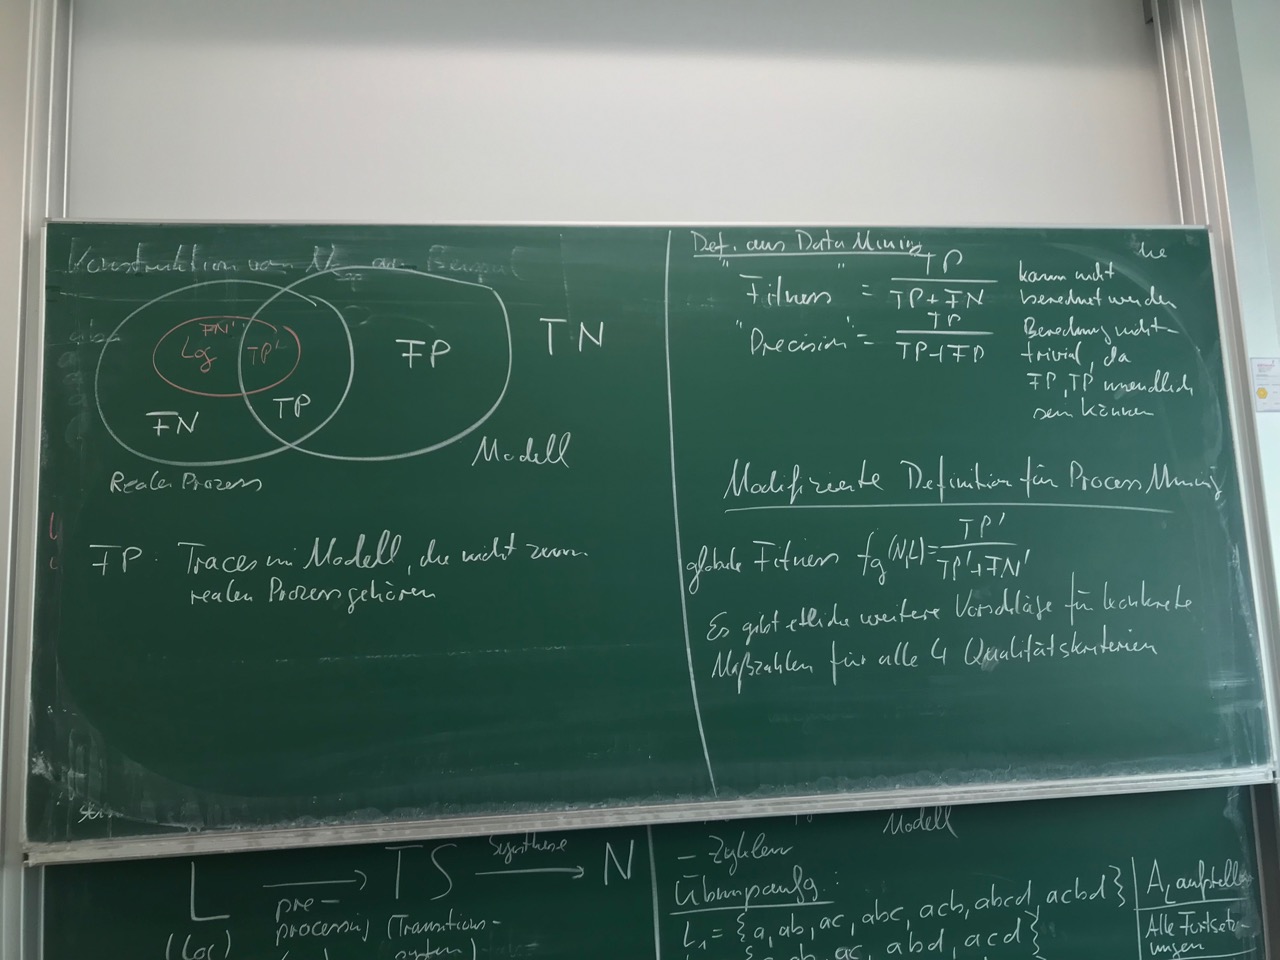 Konstruktion von
FN'
Log
TP'
FP
TN
FN
TP
Modell
Realer Prozess
FP: Traces im Modell, die nicht zum
realen Prozess gehören
Def. aus Data Mining
"Fitness" = TP / TP + FN
kann nicht
berechnet werden
"Precision" = TP / TP + FP
Berechnung nicht-
trivial, da
FP, TP unendlich
sein können
Modifizierte Definition für Process Mining
globale Fitness fg(N,L) = TP' / TP' + FN'
Es gibt etliche weitere Vorschläge für konkrete
Maßzahlen für alle 4 Qualitätskriterien
L → TS → N
Synthese
pre-
processing
(Log)
(Transitions-
system)
Modell
- Zyklen
Übungsaufg.:
L₁ = {a, ab, ac, abc, acb, abcd, acbd}
ab, ac, abd, acd}
A_L aufstellen
Alle Fortsetz-
ungen